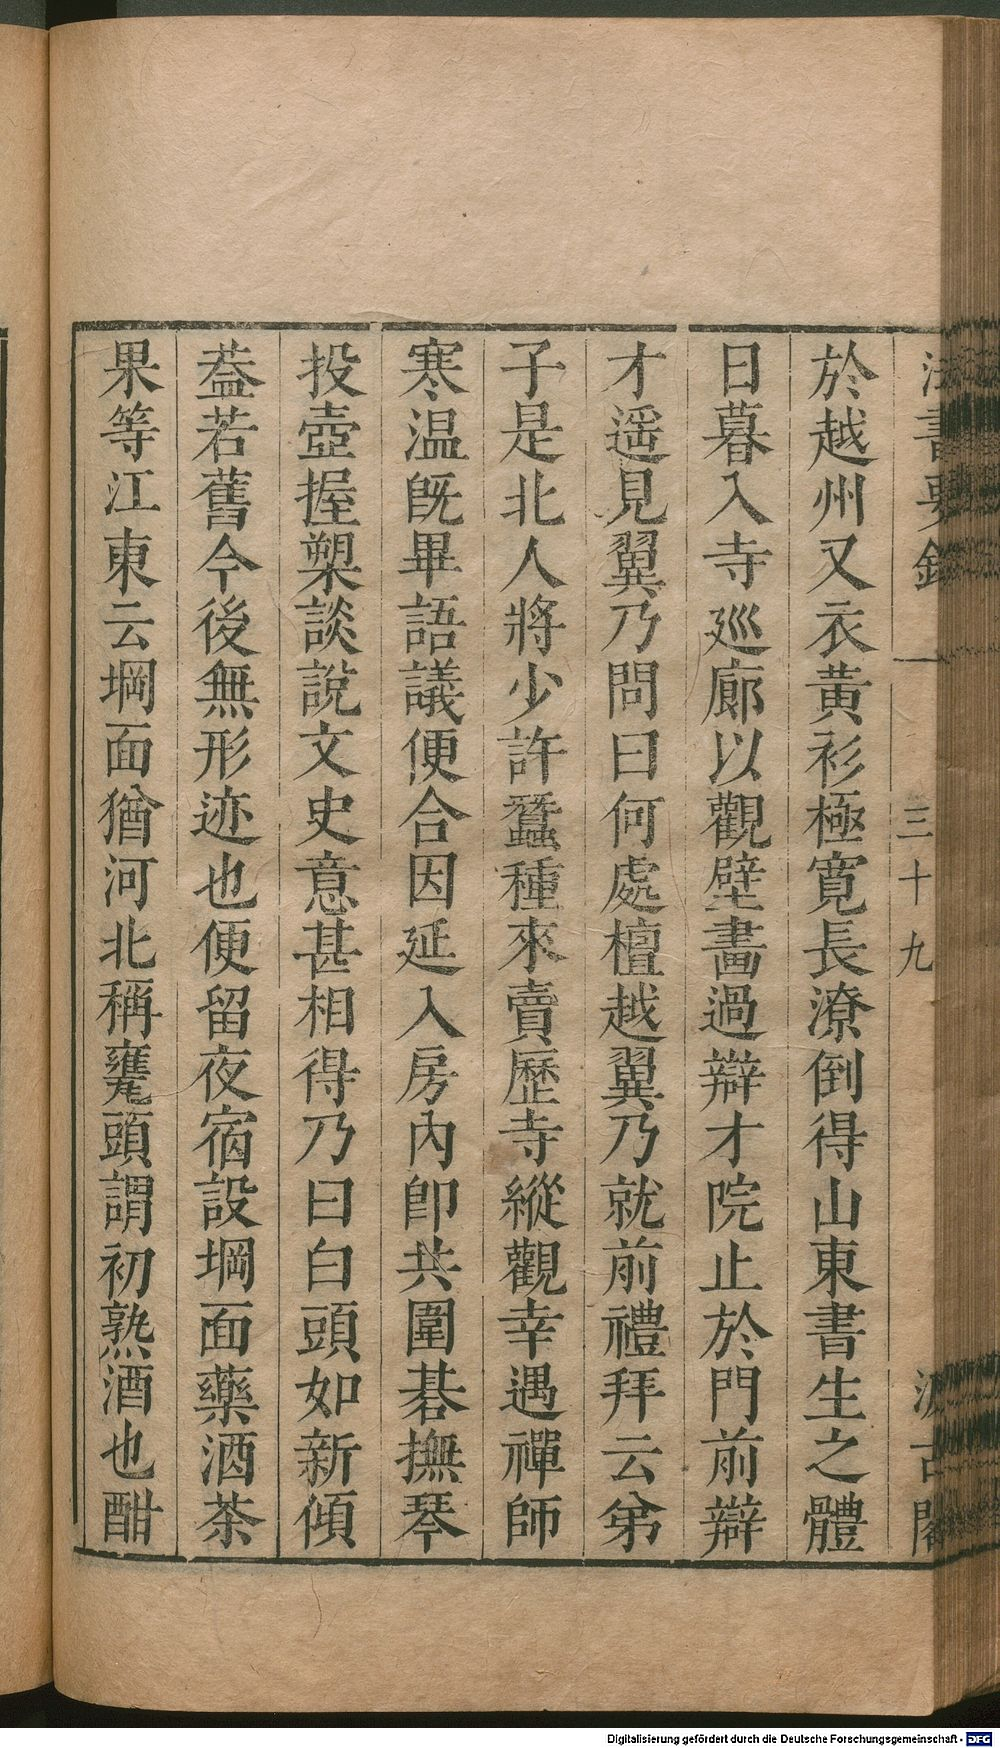 法書要錄 一 三十九 汲古閣
於越州又衣黃衫極寬長潦倒得山東書生之體
日暮入寺廵廊以觀壁畵過辯才院止於門前辯
才遥見翼乃問曰何處檀越翼乃就前禮拜云弟
子是北人將少許蠶種來賣歷寺縱觀幸遇禪師
寒温旣畢語議便合因延入房內卽共圍碁撫琴
投壺握槊談說文史意甚相得乃曰白頭如新傾
葢若舊今後無形迹也便留夜宿設堈面藥酒茶
果等江東云堈面猶河北稱甕頭謂初熟酒也酣
Digitalisierung gefördert durch die Deutsche Forschungsgemeinschaft - DFG